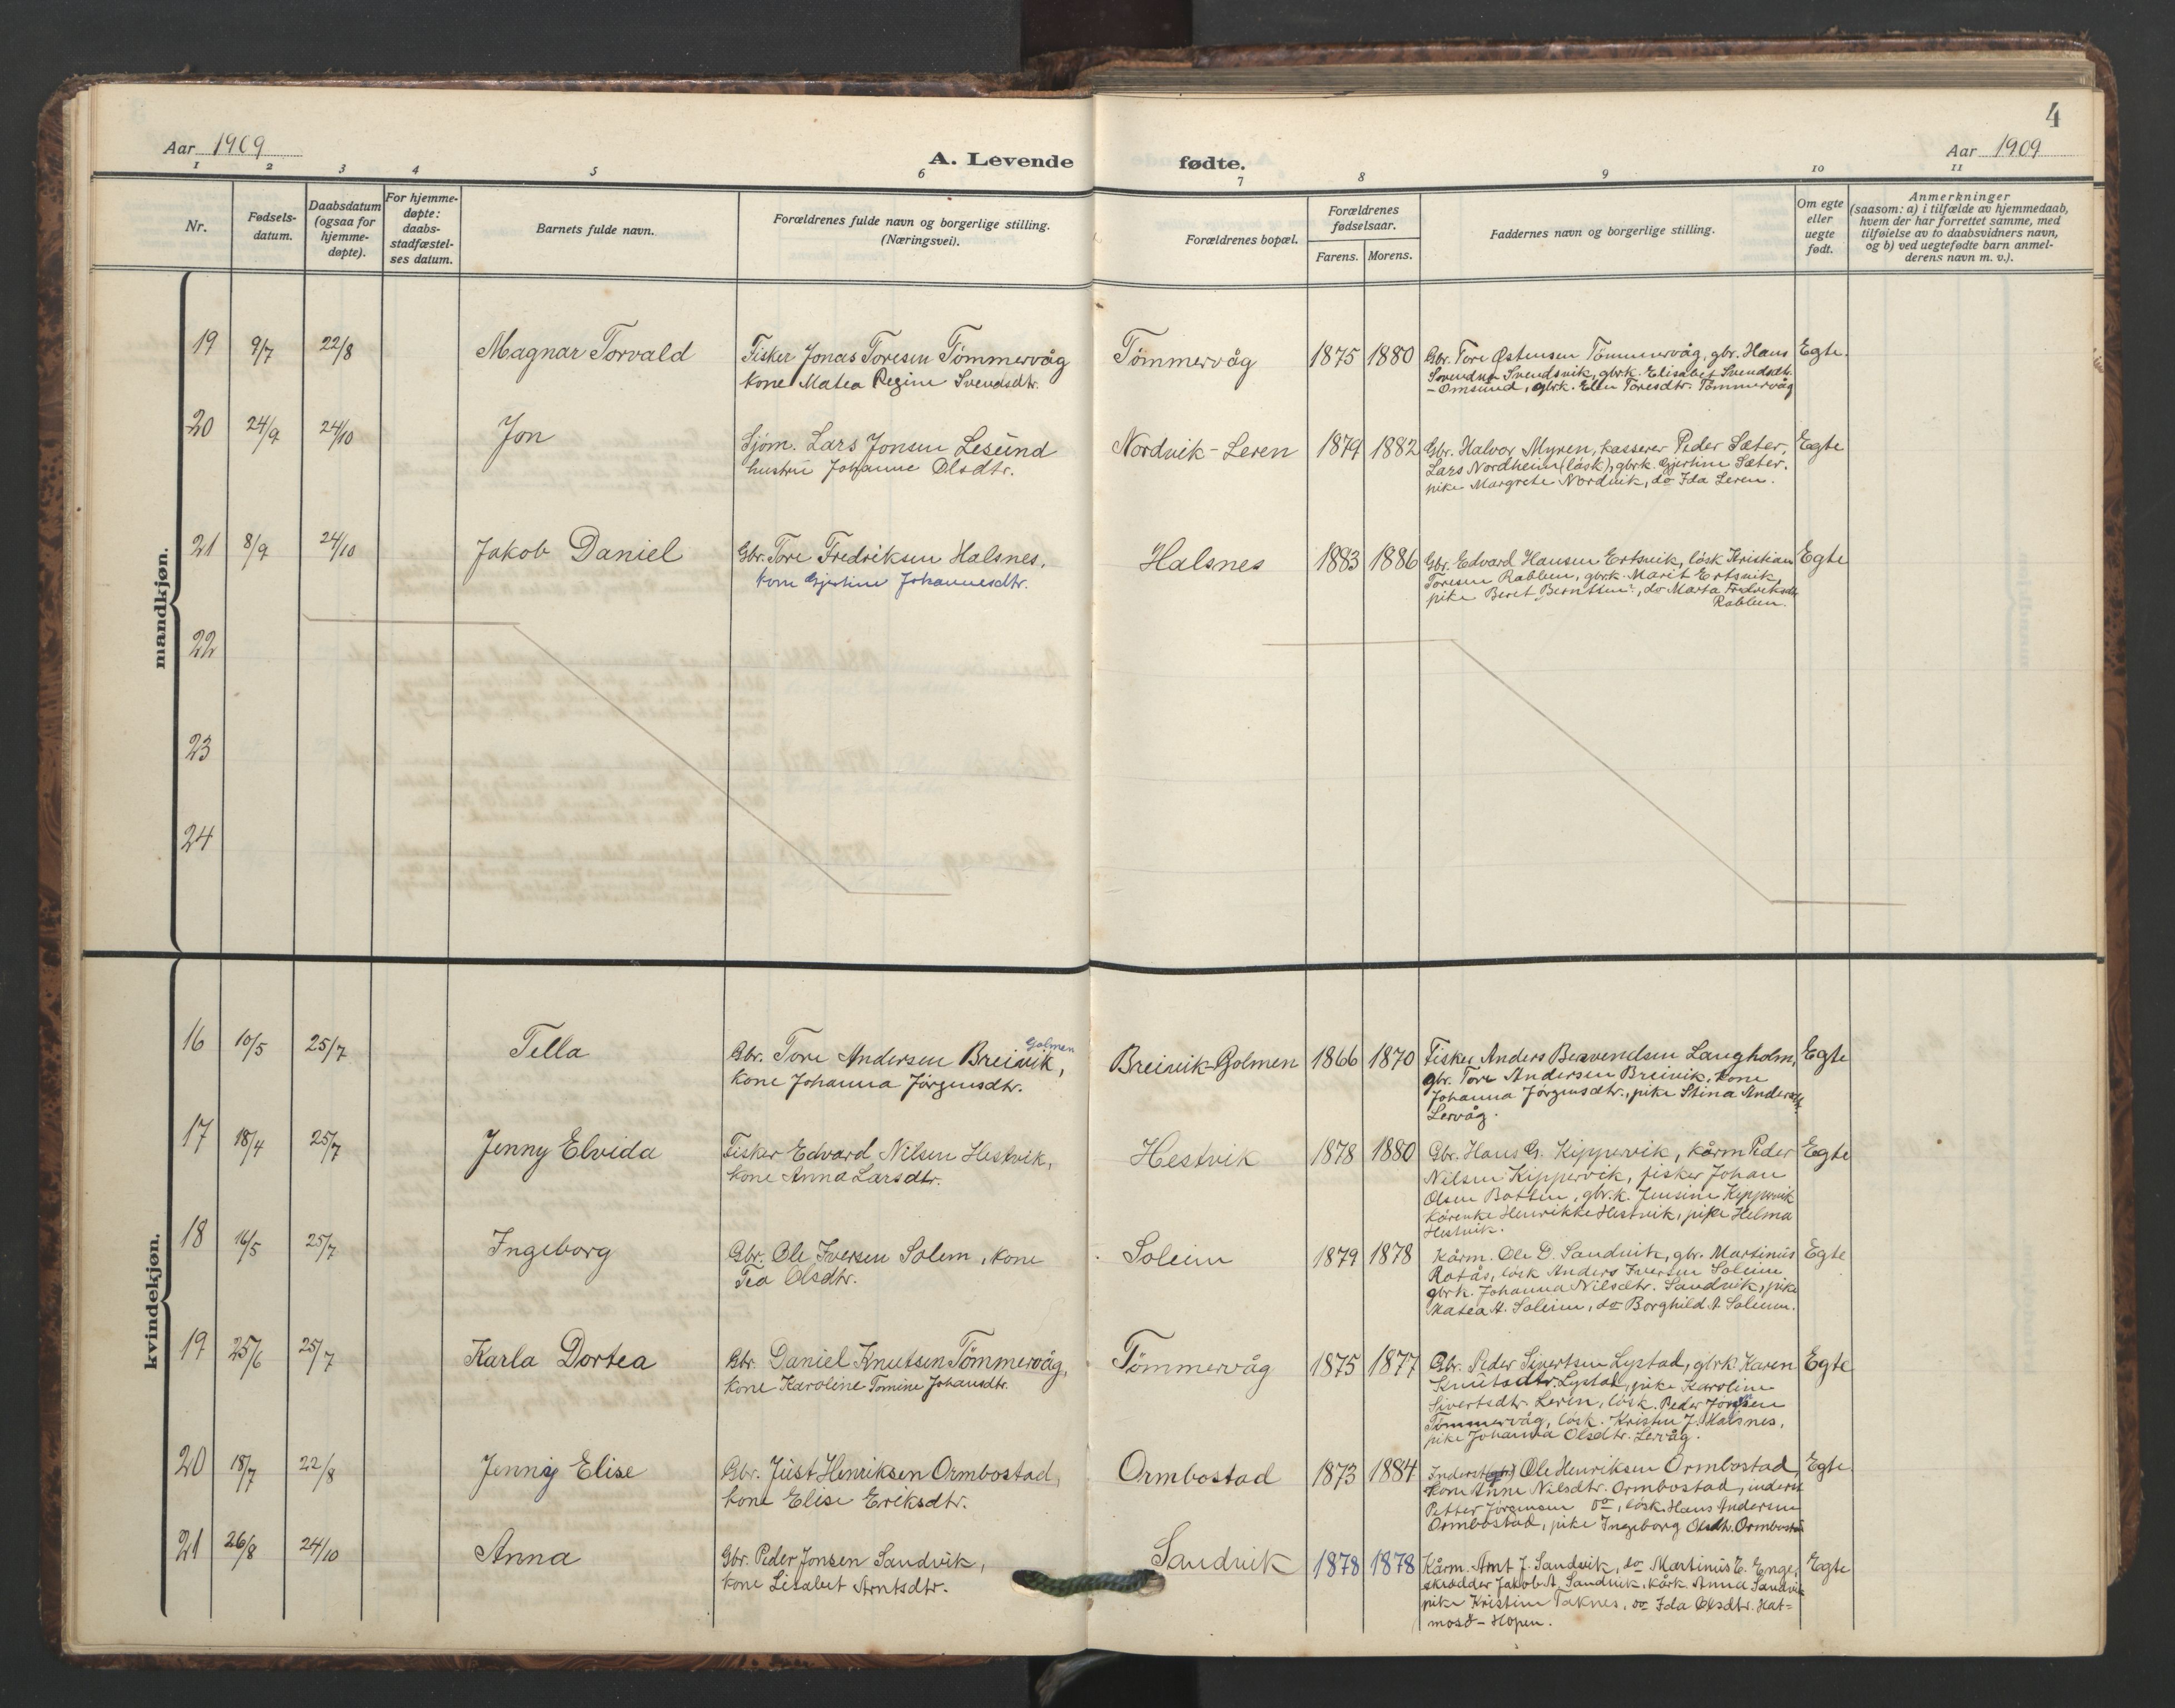 4
Aar 1909
A. Levende fødte.
Aar 1909
1 2 3 4 5 6 7 8 9 10 11
Nr.
Fødsels-
datum.
Daabsdatum
(ogsaa for
hjemme-
døpte).
For hjemme-
døpte:
daabs-
stadfæstel-
ses datum.
Barnets fulde navn.
Forældrenes fulde navn og borgerlige stilling.
(Næringsvei).
Forældrenes bopæl.
Forældrenes
fødselsaar.
Farens. Morens.
Faddernes navn og borgerlige stilling.
Om egte
eller
uegte
født.
Anmerkninger
(saasom: a) i tilfælde av hjemmedaab,
hvem der har forrettet samme, med
tilføielse av to daabsvidners navn,
og b) ved uegtefødte barn anmel-
derens navn m. v.).
mandkjøn.
19 9/7 22/8 Magnar Torvald
Fisker Jonas Toresen Tömmervåg
kone Matea Regine Svendsdtr.
Tömmervåg 1875 1880
Gbr. Tore Østensen Tömmervåg, gbr. Hans
Svendsen Svendsvik, gbrk. Elisabet Svendsdtr.
- Omsund, gbrk. Elen Toresdtr. Tömmervåg
Egte.
20 24/9 24/10 Jon
Sjöm. Lars Jonsen Lesund
hustru Johanne Olsdtr.
Nordvik-Leren 1879 1882
Gbr. Halvor Myren, kasserer Peder Sæter,
Lars Nordheim (lösk), gbrk. Gjertine Sæter.
pike Margrete Nordvik, do Ida Leren.
Egte
21 8/9 24/10 Jakob Daniel
Gbr. Tore Fredriksen Halsnes,
kone Gjertine Johannesdtr.
Halsnes 1883 1886
Gbr. Edvard Hansen Ertsvik, lösk Kristian
Toresen Rablen, gbrk. Marit Ertsvik,
pike Beret Berntsen, do Marta Fredriksdtr
Rablen.
Egte
22
23
24
kvindekjøn.
16 10/5 25/7 Tella
Golmen
Gbr. Tore Andersen Breivik,
kone Johanna Jörgensdtr.
Breivik-Golmen 1866 1870
Fisker Anders Langholm,
gbr. Tore Andersen Breivik, kone
Johanna Jörgensdtr., pike Stina Andersdtr.
Lervåg.
Egte
17 18/4 25/7 Jenny Elvida
Fisker Edvard Nilsen Hestvik,
kone Anna Larsdtr.
Hestvik 1878 1880
Gbr. Hans G. Kippervik, kårm Peder
Nilsen Kippervik, fisker Johan
Olsen Botten, gbr.k. Jensine Kippervik
Kårenke Henrikke Hestvik, pike Helma
Hestvik.
Egte
18 16/5 25/7 Ingeborg
Gbr. Ole Iversen Solem, kone
Tea Olsdtr.
Soleim 1879 1878
Kårm. Ole D. Sandvik, gbr. Martinus
Rotås, lösk Anders Iversen Soleim
gbrk. Johanna Nilsdtr. Sandvik, pike
Matea A. Soleim, do Borghild A. Soleim.
Egte
19 25/6 25/7 Karla Dortea
Gbr. Daniel Knutsen Tömmervåg,
kone Karoline Tomine Johansdtr.
Tömmervåg 1875 1877
Gbr. Peder Sivertsen Lystad, gbrk Karen
Knutsdtr. Lystad, pike Karoline
Sivertsdtr. Leren, lösk. Peder Jörgsen
Tömmervåg, lösk. Kristen J. Halsnes,
pike Johanna Olsdtr. Lervåg.
Egte
20 18/7 22/8 Jenny Elise
Gbr. Just Henriksen Ormbostad,
kone Elise Eriksdtr.
Ormbostad 1873 1884
Inderst (gbr) Ole Henriksen Ormbostad,
kone Anne Nilsdtr. Ormbostad, inderst
Petter Jörgensen do, lösk. Hans Andersen
Ormbostad, pike Ingeborg Olsdtr. Ormbostad
Egte.
21 26/8 24/10 Anna
Gbr. Peder Jonsen Sandvik,
kone Lisabet Arntsdtr.
Sandvik 1878 1878
Kårm. Arnt J. Sandvik, do Martinus E. Enge,
skrædder Jakob A. Sandvik, kårk. Anna Sandvik
pike Kristine Taknes, do Ida Olsdtr. Hat-
mosö - Hopen.
Egte